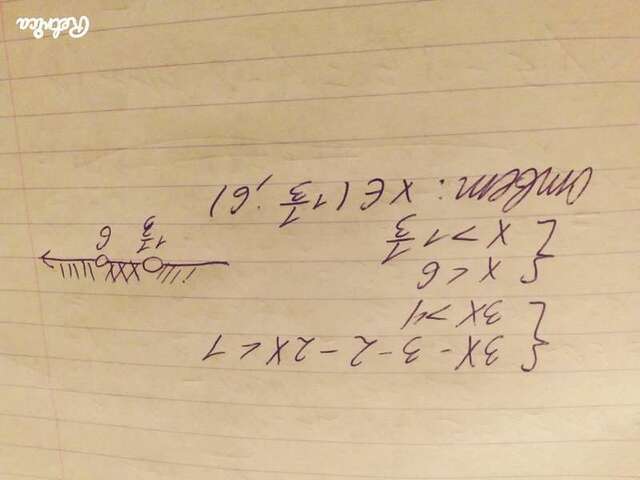 { 3x - 3 - 2 - 2x < 1
3x > 4
{ x < 6
x > 1 1/3
1 1/3 6
ответ: x ∈ (1 1/3 ; 6)
Retrica